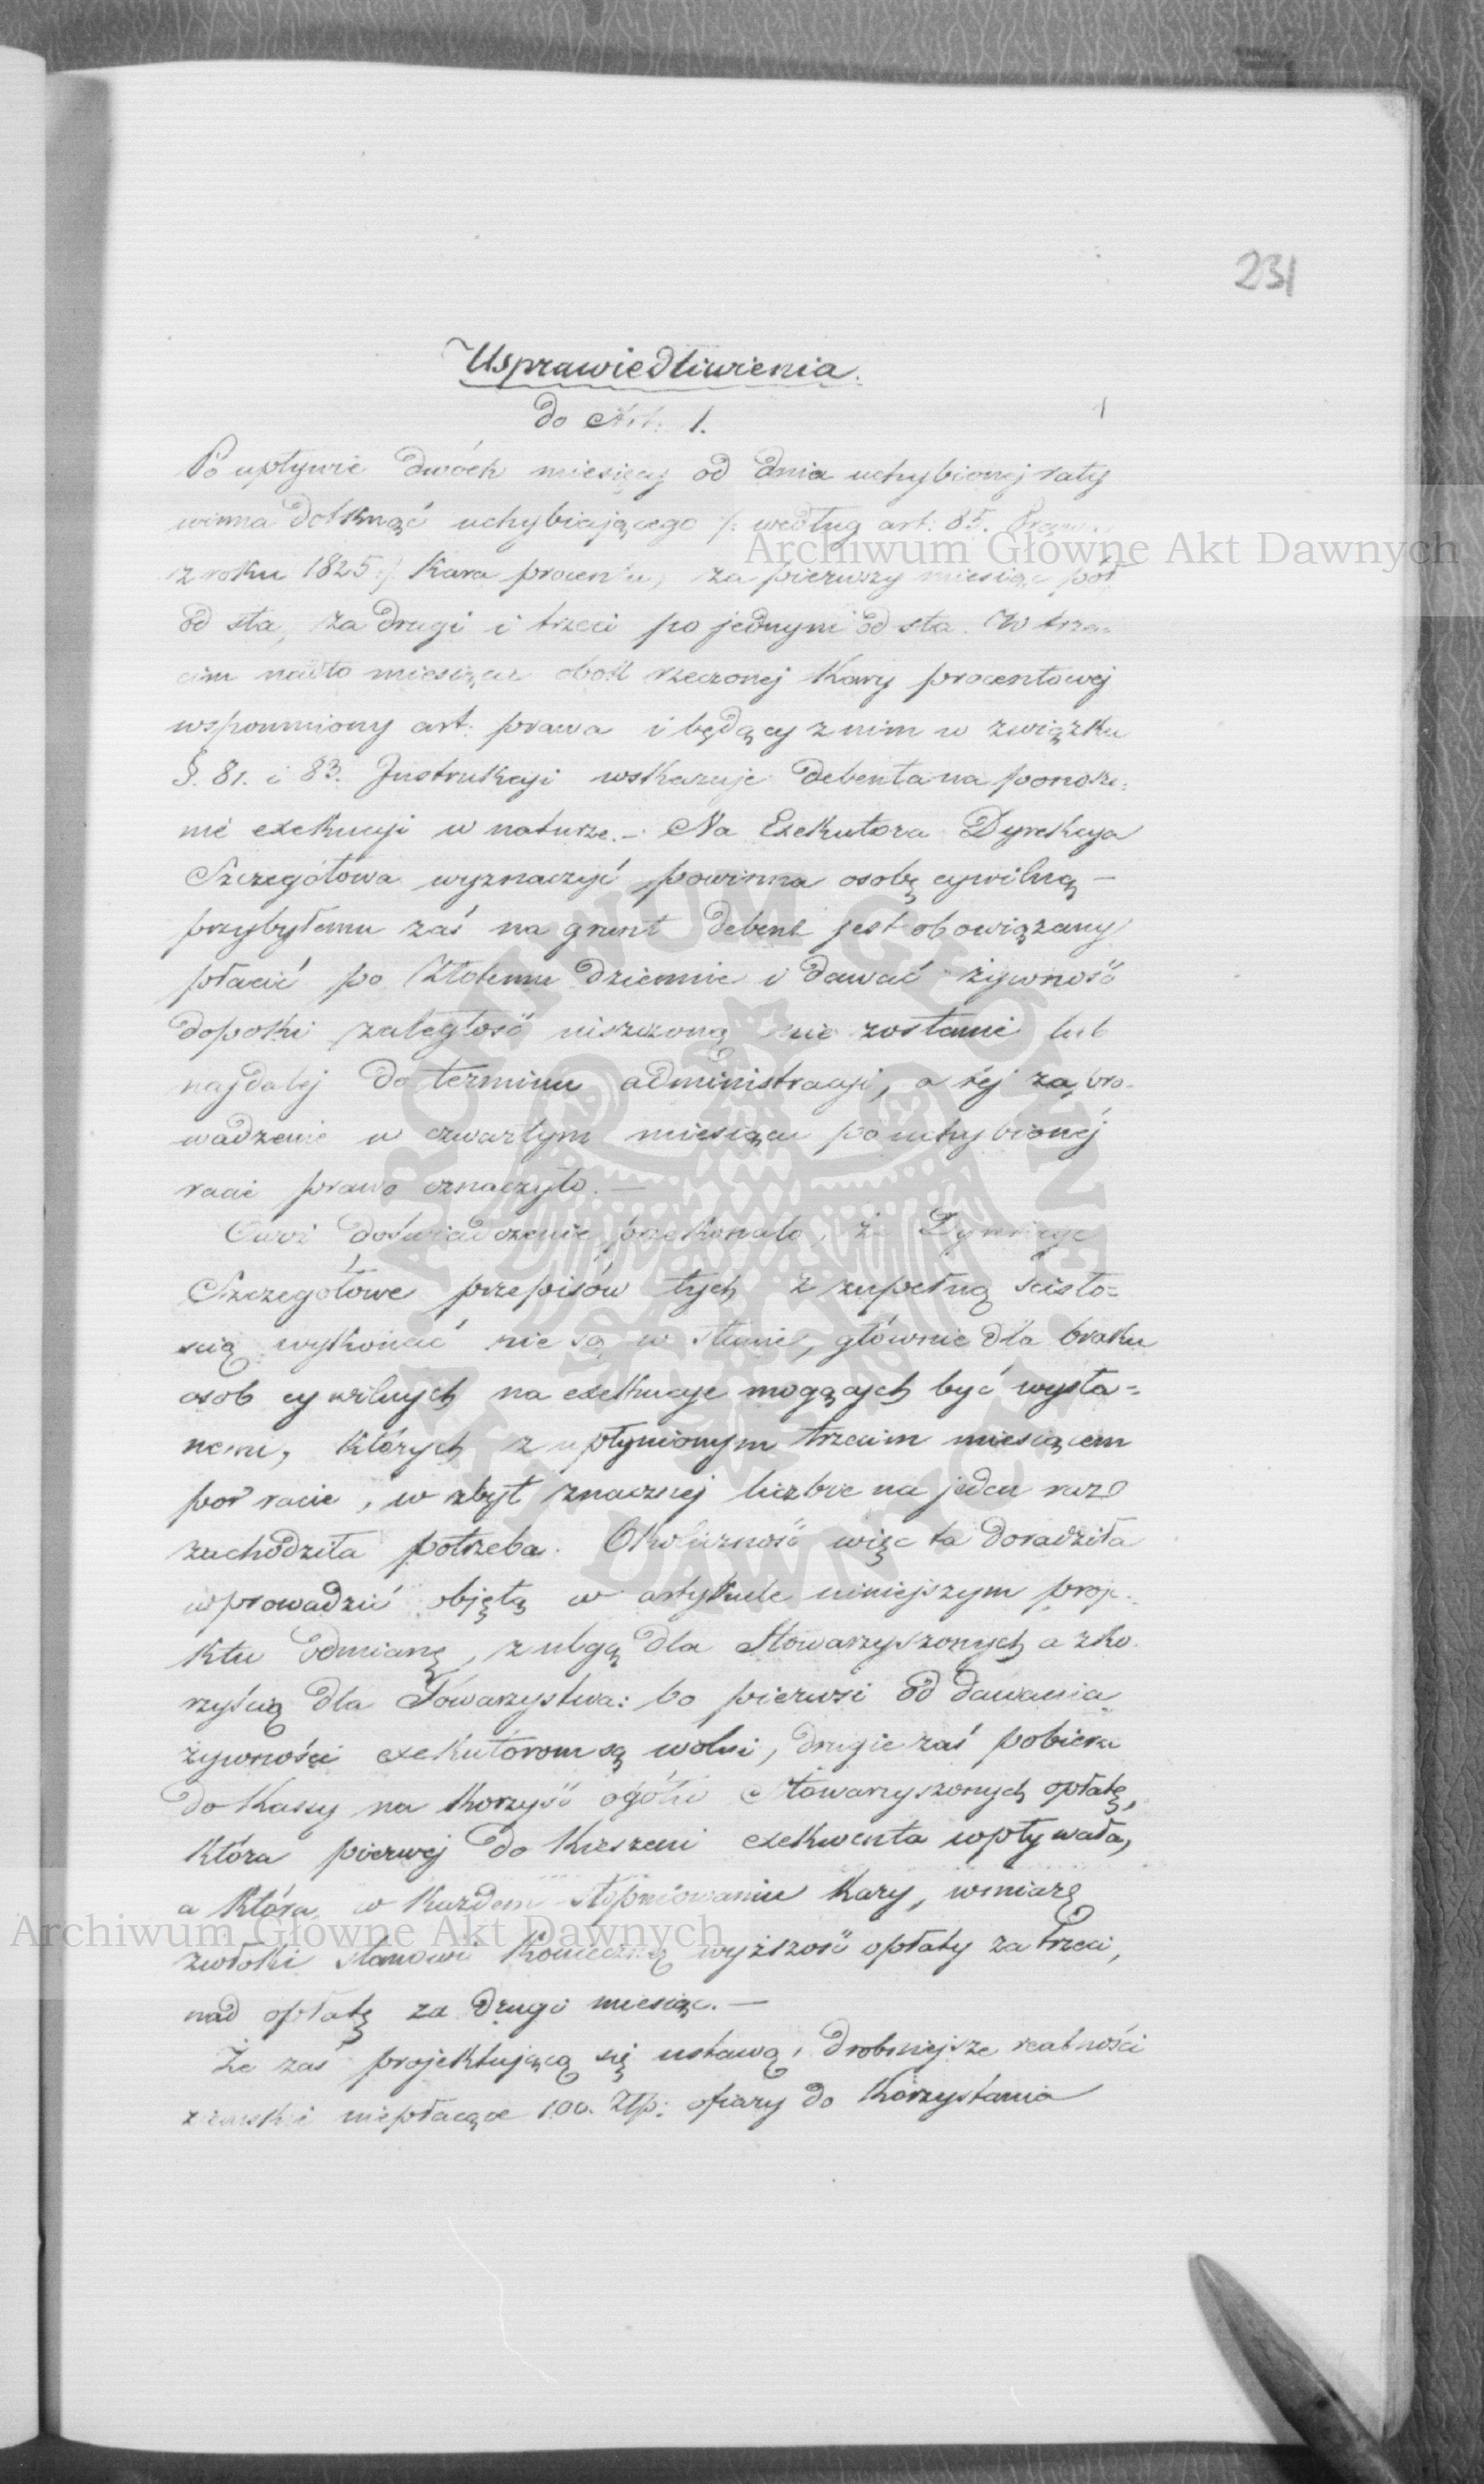 231
Usprawiedliwienia.
do Art. 1.
Po upływie dwóch miesięcy od dnia uchybionej raty
winna dotknąć uchybiającego /: według art: 85. Prawa
z roku 1825 :/ kara procentu, za pierwszy miesiąc pół
od sta, za drugi i trzeci po jednym od sta. W trze-
cim nadto miesiącu obok rzeczonej kary procentowej
wspomniony art: prawa i będący z nim w związku
§. 81. i 83. Instrukcyi wskazuje debenta na ponosze:
nie exekucyi w naturze. – Na Exekutora Dyrekcya
Szczegółowa wyznaczyć powinna osobę cywilną –
przybyłemu zaś na grunt debent jest obowiązany
płacić po Złotemu dziennie i dawać żywność
dopóki zaległość uiszczoną nie zostanie lub
najdalej do terminu administracyi, a tej zapro-
wadzenie w czwartym miesiącu po uchybionej
racie prawo oznaczyło. —
Owoż doświadczenie przekonało, że Dyrekcye
Szczegółowe przepisów tych z zupełną ścisło=
ścią wykonać nie są w stanie, głównie dla braku
osob cywilnych na exekucye mogących być wysła=
nemi, których z upłynionym trzecim miesiącem
por racie, w zbyt znacznej liczbie na jeden raz
zachodziła potrzeba. Okoliczność więc ta doradziła
wprowadzić objętą w artykule niniejszym proje-
ktu odmianę, z ulgą dla Stowarzyszonych a z ko-
rzyścią dla Towarzystwa: bo pierwsi od dawania
żywności exekutorom są wolni, drugie zaś pobiera
do Kassy na korzyść ogółu Stowarzyszonych opłatę,
która pierwej do kieszeni exekwenta wpływała,
a która w każdem stopniowaniu kary, w miarę
zwłoki stanowi konieczną wyższość opłaty za trzeci,
nad opłatę za drugi miesiąc. —
Że zaś projektującą się ustawą, drobniejsze realności
ziemskie niepłacące 100. Złp: ofiary do korzystania
Archiwum Główne Akt Dawnych
Archiwum Główne Akt Dawnych
ARCHIWUM GŁÓWNE AKT DAWNYCH